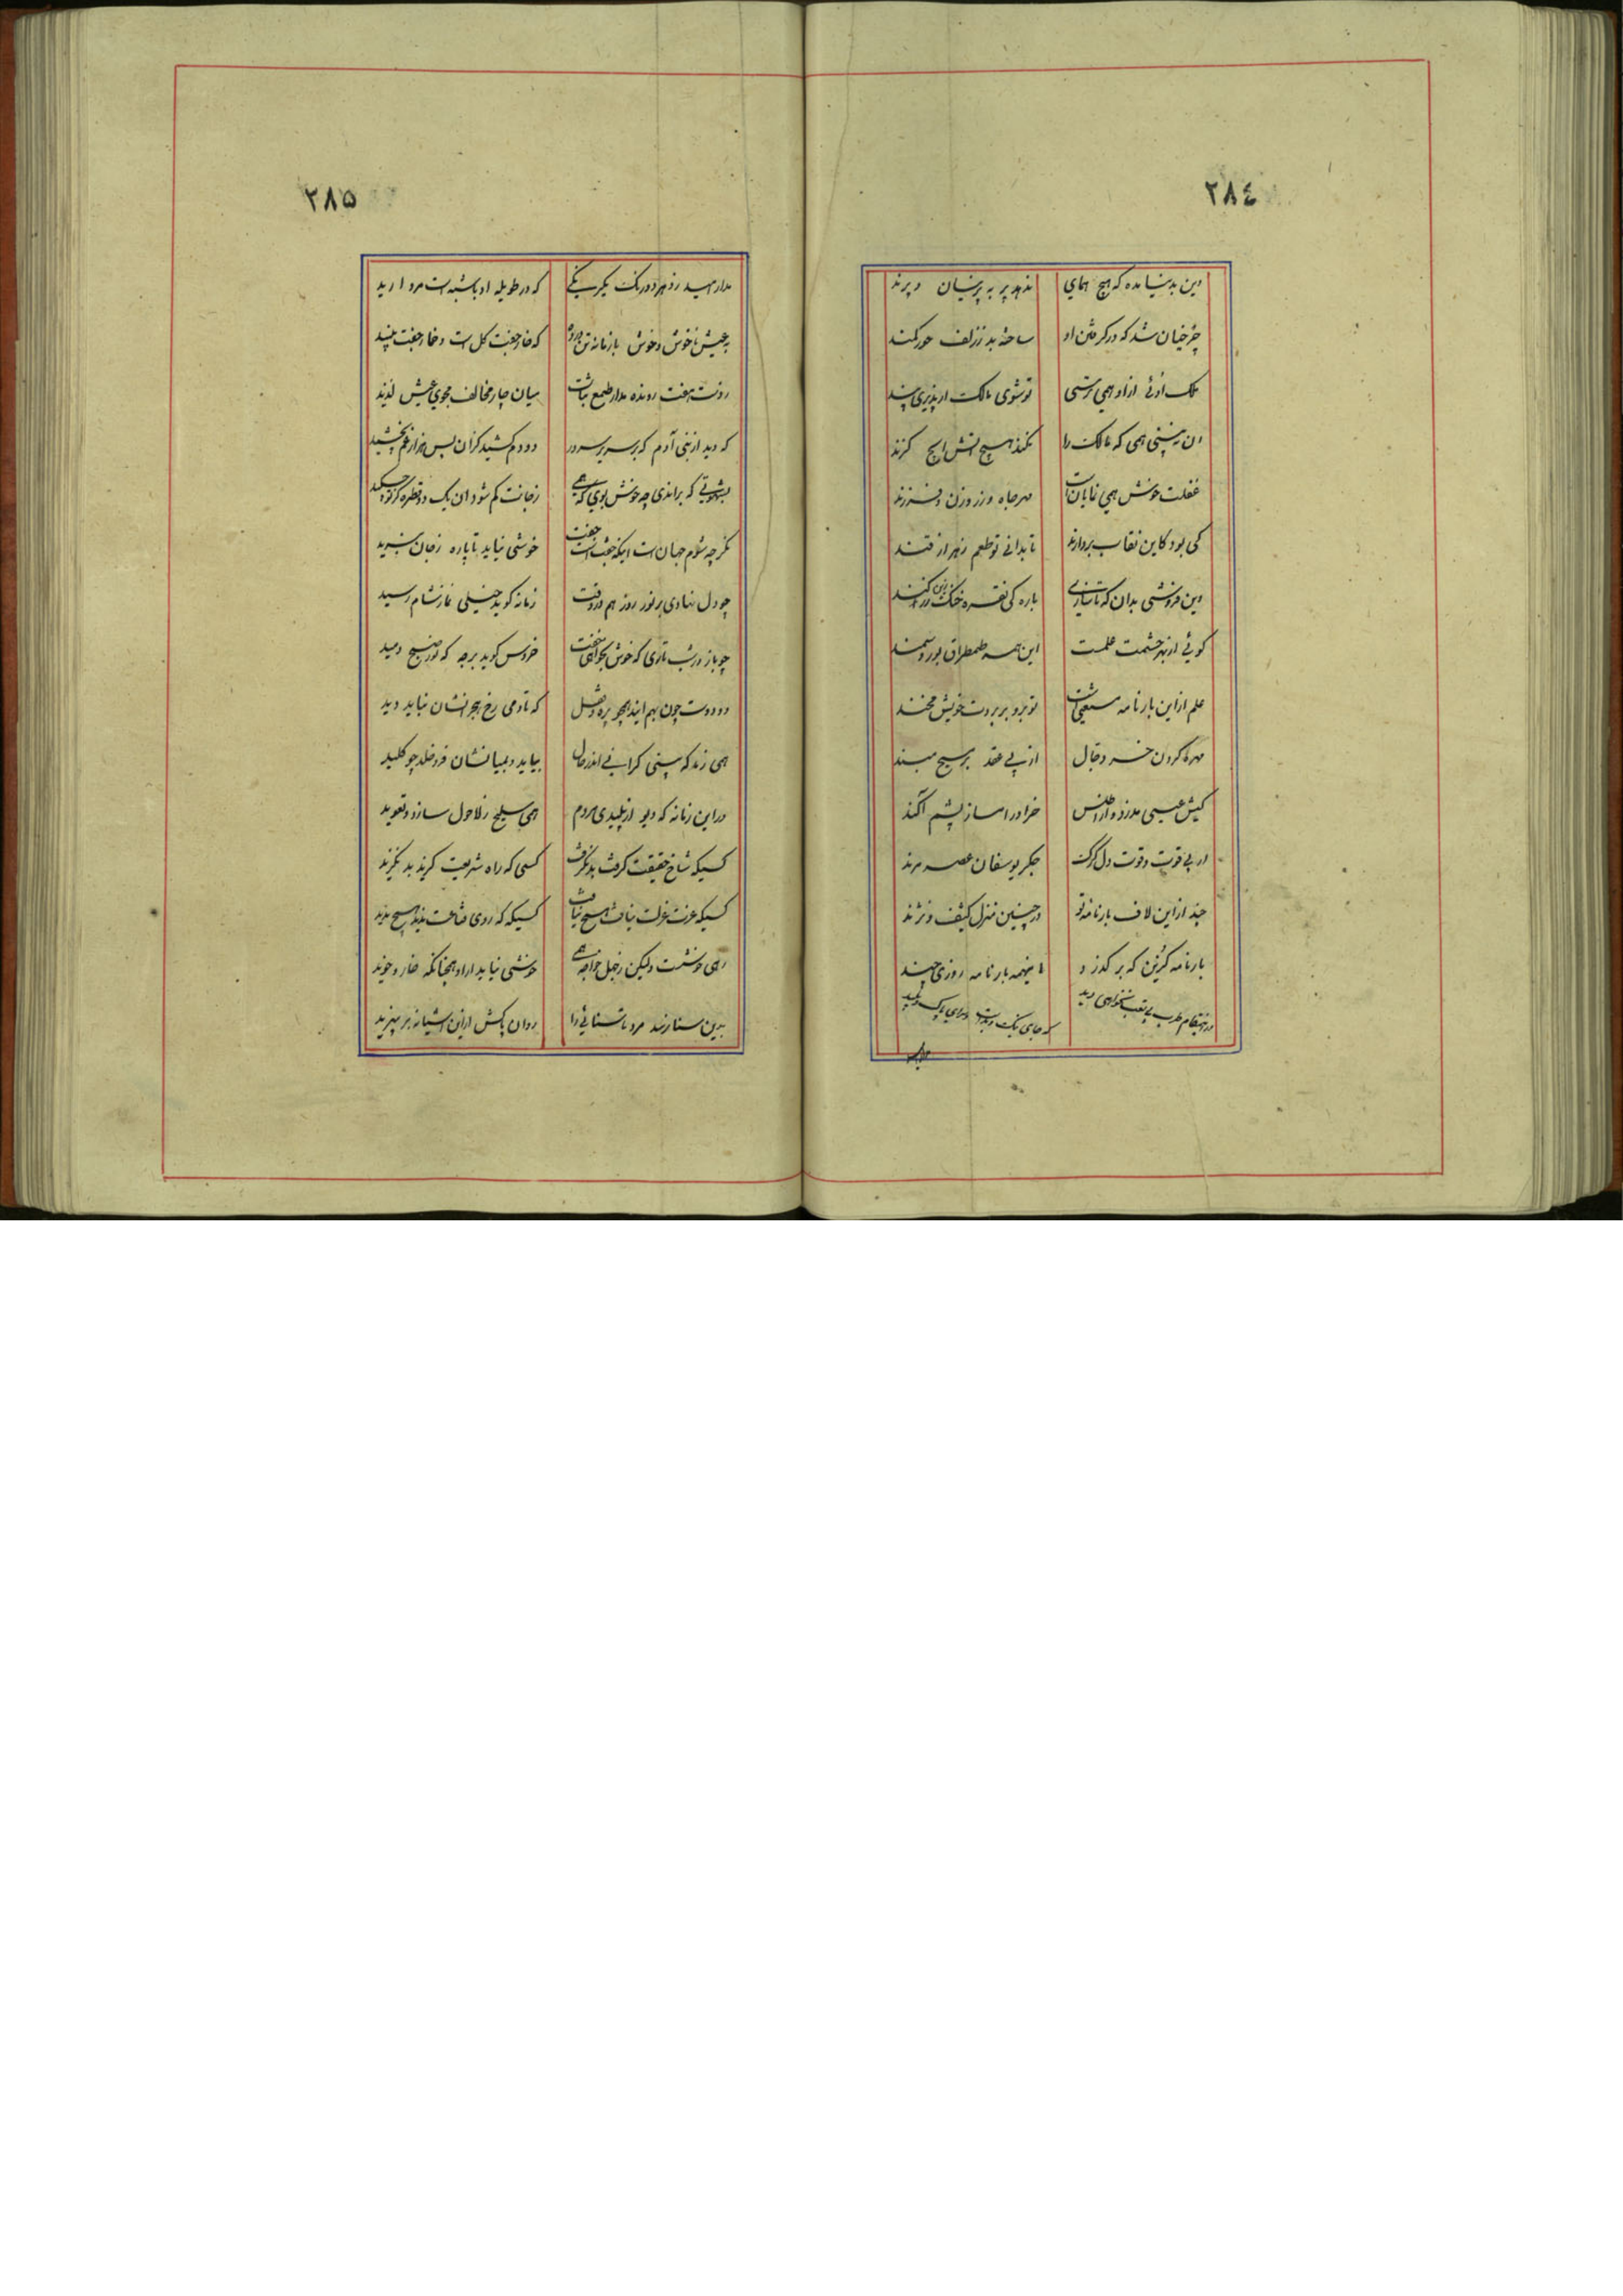 ٢٨٤
این بدنیا مده که هیچ همای ندهد پر به پرنیان و پرند
چرخیان شد که در کردن او ساخته بد ززلف حور کمند
ملک او نی ازاو همی ترسی تو شوی مالک ار پذیری پند
ان نه بینی همی که مالک را نکند هیچ آتش ایچ گزند
غفلت خوش همی نمایان است مهر جاه و زر و زن و فرزند
کی بود کاین نقاب بردارند تا بدانی تو طعم زهر از قند
این فروشی بدان که تا سازی باره کی نقره خنک زین زر کند
کوئی از بهر حشمت علمست این همه طمطراق بور و سمند
علم ازاین بارنامه مستغنی است تو برو بر بروت خویش مخند
مهره گردن خر دجال از پی عقد بر مسیح مبند
کیش عیسی مدزد و از اطلس خر او را مساز پشم آکند
از پی قوت و قوت دل گرگ جگر یوسفان عصر مرند
چند ازاین لاف بارنامه تو در چنین منزل کثیف و نژند
بارنامه گزین که بر گذرد اینهمه بارنامه روزی چند
در مقام طرب بی تعب نخواهی دید که جای نیک و بد است و سرای پاک و پلید
٢٨٥
مدار امید ز دهر دو رنگ یکرنگی که در طویله او با شبه است مروارید
به عیش ناخوش و خوش با زمانه تن در ده که خار جفت گل است و خار جفت نبید
ز دست هفت رونده مدار طمع نبات میان چار مخالف مجوی عیش لذیذ
که دید از بنی آدم که بر سریر سرور دو دم کشید کزان پس هزار غم نچشید
بشهوتی که برانذی چه خوش بوی که همی ز جانت کم شود ان یک دو قطره کز تو چکید
نگر چه شوم جهان است اینکه جفت است جفت خوشی نیابد تا پاره ز جان نبرید
چو دل نهادی بر نور روز هم در وقت زمانه گوید خیلی نماز شام رسید
چو باز در شب تاری که خوش بخواهی خفت خروس گوید برجه که نور صبح دمید
دو دوست چون بهم ایند همچو پره و قفل که تا دمی رخ هجرانشان نباید دید
همی زند که بینی گرانی اندر حال بیاید و بمیانشان فرو خلد چو کلید
دراین زمانه که دیو از پلیدی مردم همی سلیح زلاحول سازد و تعوید
کسیکه شاخ حقیقت گرفت بد نگرفت کسی که راه شریعت گزید بد نگزید
کسیکه عزت عزلت نیافت هیچ نیافت کسیکه که روی قناعت ندید هیچ ندید
رهی خوشست ولیکن زجهل خواجه همی خوشی نیابد ازاو همچنانکه خار و خوید
بدین سنا زسد مرد تا سنائی را روان پاکش ازاین اشیانه بر نپرید